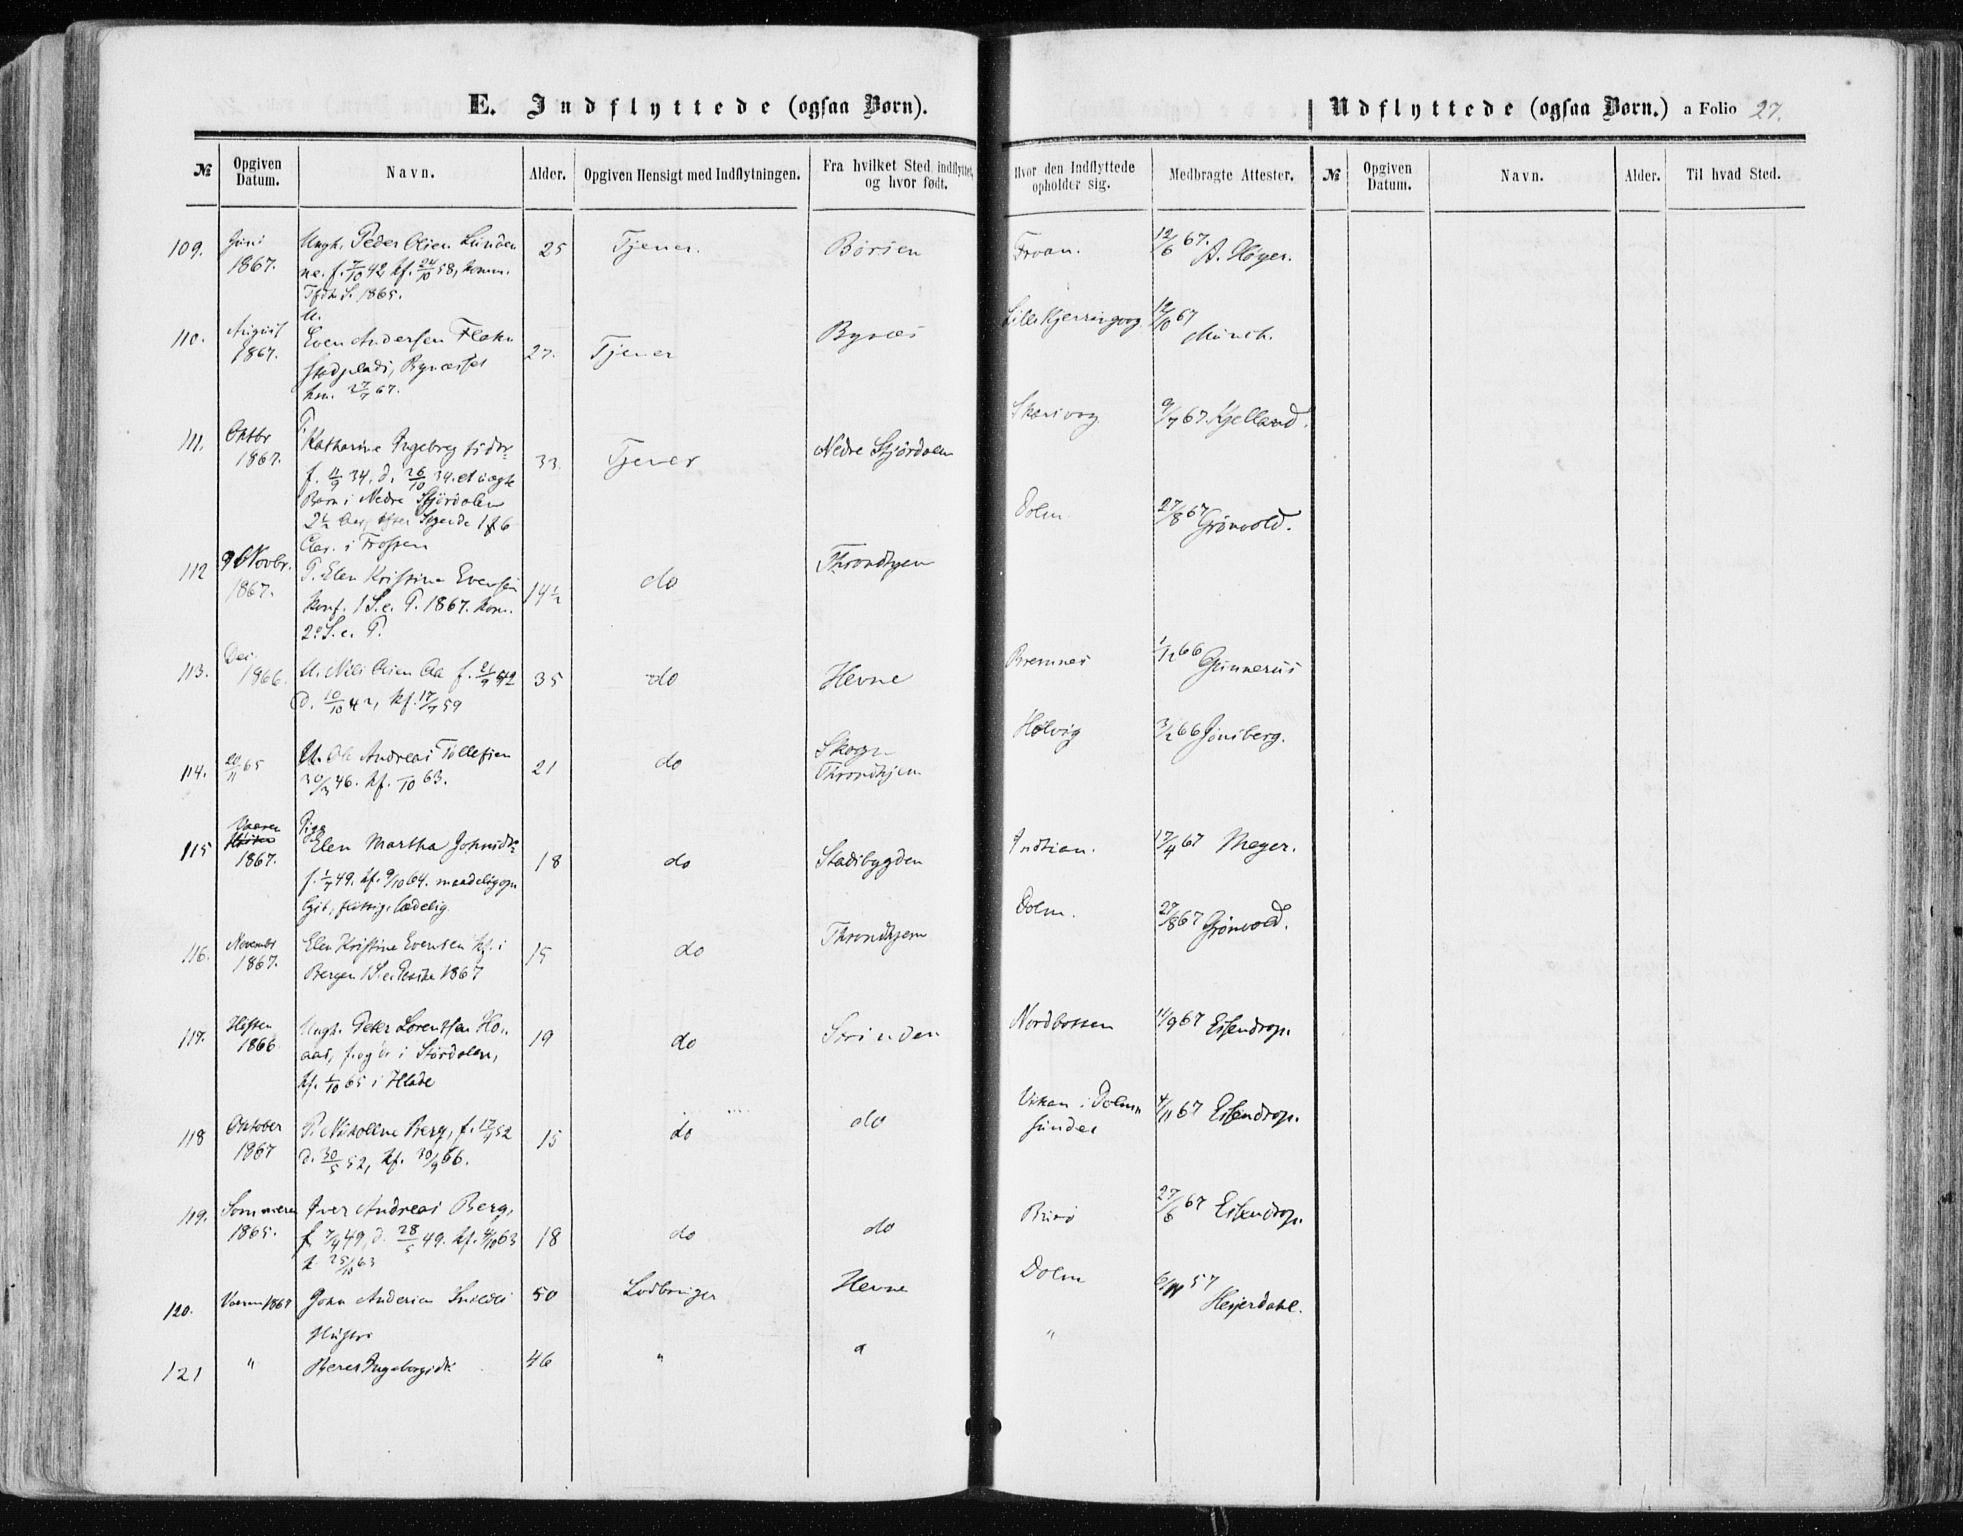 E. Indflyttede (ogsaa Børn).
Udflyttede (ogsaa Børn.) a Folio 27.
№ Opgiven Datum. Navn. Alder. Opgiven Hensigt med Indflytningen. Fra hvilket Sted indflyttet, og hvor født. Hvor den Indflyttede opholder sig. Medbragte Attester. № Opgiven Datum. Navn. Alder. Til hvad Sted.
109. Juni 1867. Ungk. Peder Olsen 25 Tjener. Børsen Froan. 12/6 67. A. Høyer.
ne. f. 7/10 42 kf. 24/10 58, komm.
1865.
110. August 1867. Even Andersen 27. Tjener Bynæs Lille Kjerringvog 12/10 67 Münch.
Bynæsset
27/7 67.
111. Oktbr 1867. Katharina Ingebregtsdtr 33. Tjener Nedre Stjørdalen 9/7 67 Kjelland.
f. 11/9 34, d. 26/10 34. et uægte
Barn i Nedre Stjørdalen
2 1/2 Aar, efter Sigende
112 9 Novbr. 1867. P. Elen Kristine Evensen 14 1/2 do Throndhjem Dolm 27/8 67 Grønvold.
Konf. 1 S. e. P. 1867. kom.
2. S. e. P.
113. Dec. 1866. U. Nils Olsen Aa f. 21/9 42 35 do Hevne Bremnes 1/12 66 Gunnerus
d. 10/10 42, kf. 17/7 59
114. 20/11 65 U. Ole Andreas Tollefsen 21 do Skogn Throndhjem Holvig 3/12 66 Jonsberg.
30/3 46. kf. /10 63.
115 Vaaren 1867. Pige Elen Martha Johnsdtr 18 do Stadsbygden 17/4 67 Meyer.
f. 1/7 49. kf. 9/10 64.
flittig, sædelig.
116. Novembr 1867. Elen Kristine Evensen kf. i 15 do Throndhjem Dolm. 27/8 67 Grønvold.
Bergen 1 S. e. Paaske 1867
117. Høsten 1866 Ungk. Peter Lorentsen Ho- 19 do Strinden Nordbotten 11/9 67 Eisendrop.
aas, f. og d. i Størdalen,
kf. 1/10 65 i Hlade
118 Oktober 1867 P. Nikoline Berg, f. 17/4 52 15 do do Vikan i Dolm- 4/11 67 Eisendrop.
d. 30/5 52, kf. 30/9 66. sundet
119. Sommeren 1865. Iver Andreas Berg, 18 do do 27/6 67 Eisendrop.
f. 7/4 49, d. 28/5 49. kf. 4/10 63
k. 25/10 63
120. Vaaren 1867 John Andersen 50 Hevne Dolm 6/11 57 Heyerdahl.
Hustru
121 " Beret Ingeborgsdtr 46 " " "